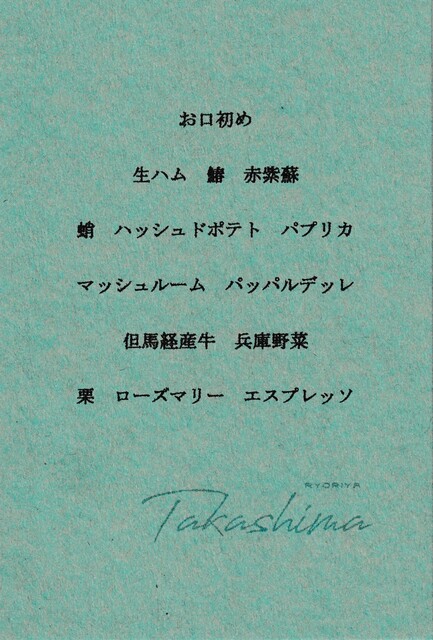 お口初め
生ハム　鰆　赤紫蘇
蛸　ハッシュドポテト　パプリカ
マッシュルーム　パッパルデッレ
但馬経産牛　兵庫野菜
栗　ローズマリー　エスプレッソ
RYORIYA
Takashima